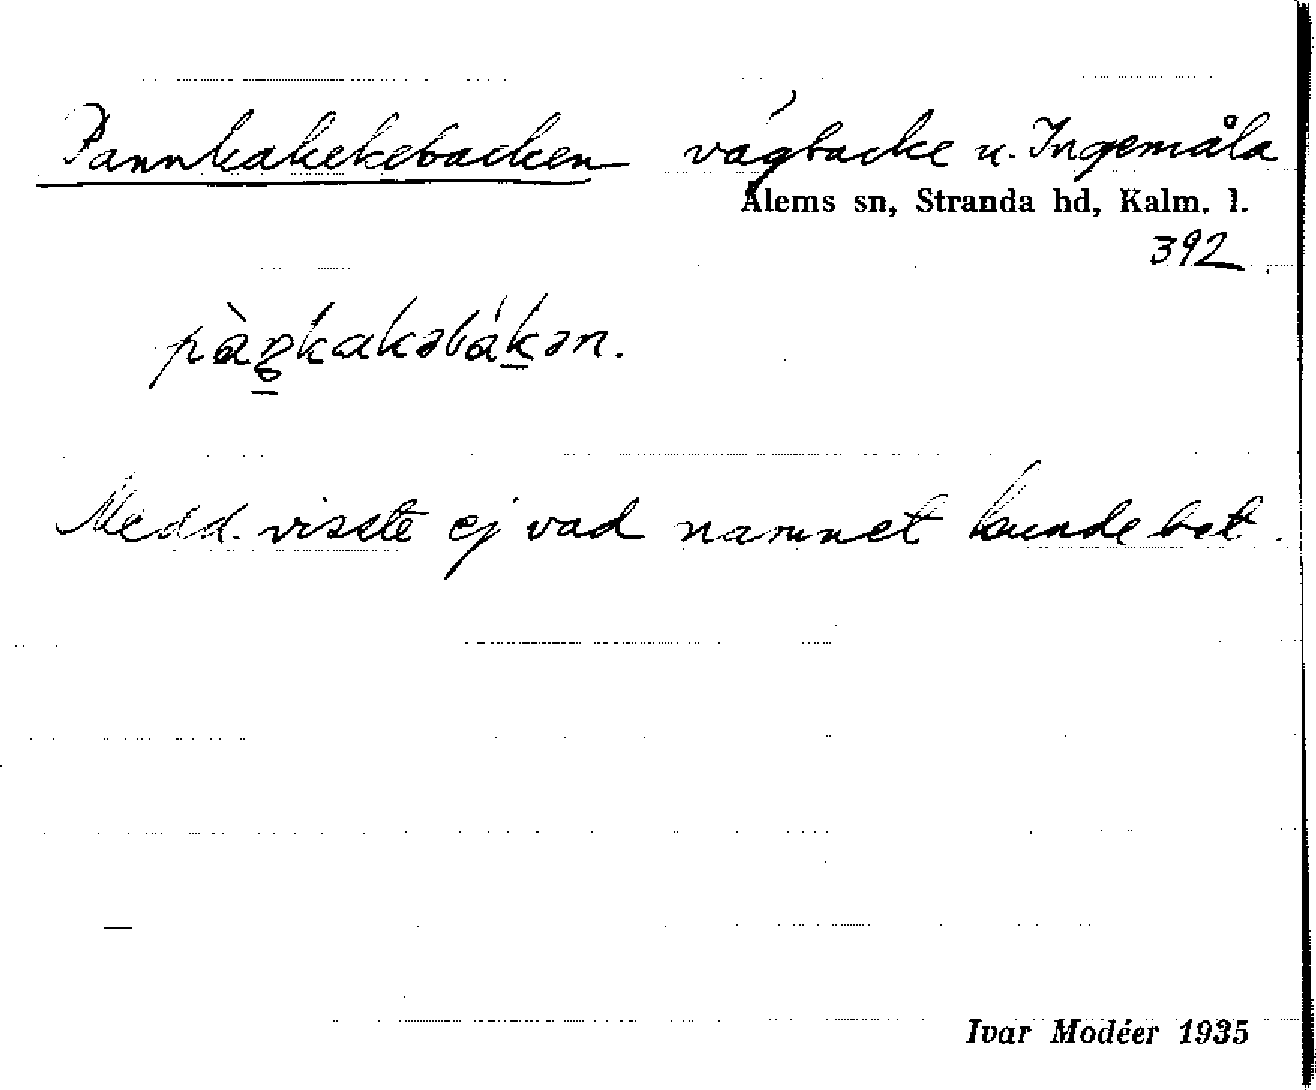 Pannkakekebacken vägbacke u. Ingemåla
Ålems sn, Stranda hd, Kalm. l.
392
pàŋkakəbákən.
Medd. visste ej vad namnet kunde bet.
Ivar Modéer 1935